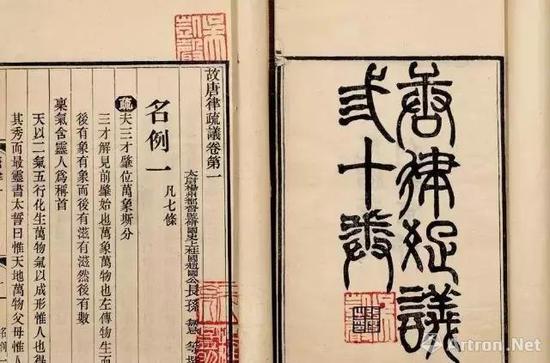 唐律疏議
弎十卷
故唐律疏議卷第一
太尉揚州都督監修國史上柱國趙國公長孫無忌等撰
名例一 凡七條
疏夫三才肇位萬象斯分
三才解見前肇始也萬象萬物也左傳物生而
後有象有象而後有滋有滋然後有數
稟氣含靈人為稱首
天以二氣五行化生萬物氣以成形惟人也得
其秀而最靈書太誓曰惟天地萬物父母惟人
Artron.Net